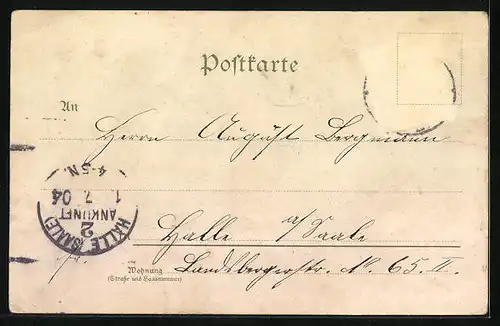 Postkarte
An
Herrn August Bergmann
Halle a/Saale
Wohnung
(Straße und Hausnummer)
Landsbergerstr. No. 65. II.
HALLE (SAALE)
2
ANKUNFT
1. 7. 04
4-5N.